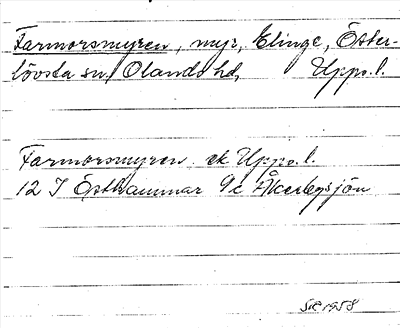 Farmorsmyren, myr, Elinge, Öster-
lövsta sn, Olands hd, Upps.l.
Farmorsmyren ek Upps.l.
12 I Östhammar 9c Åkerbysjön
1958